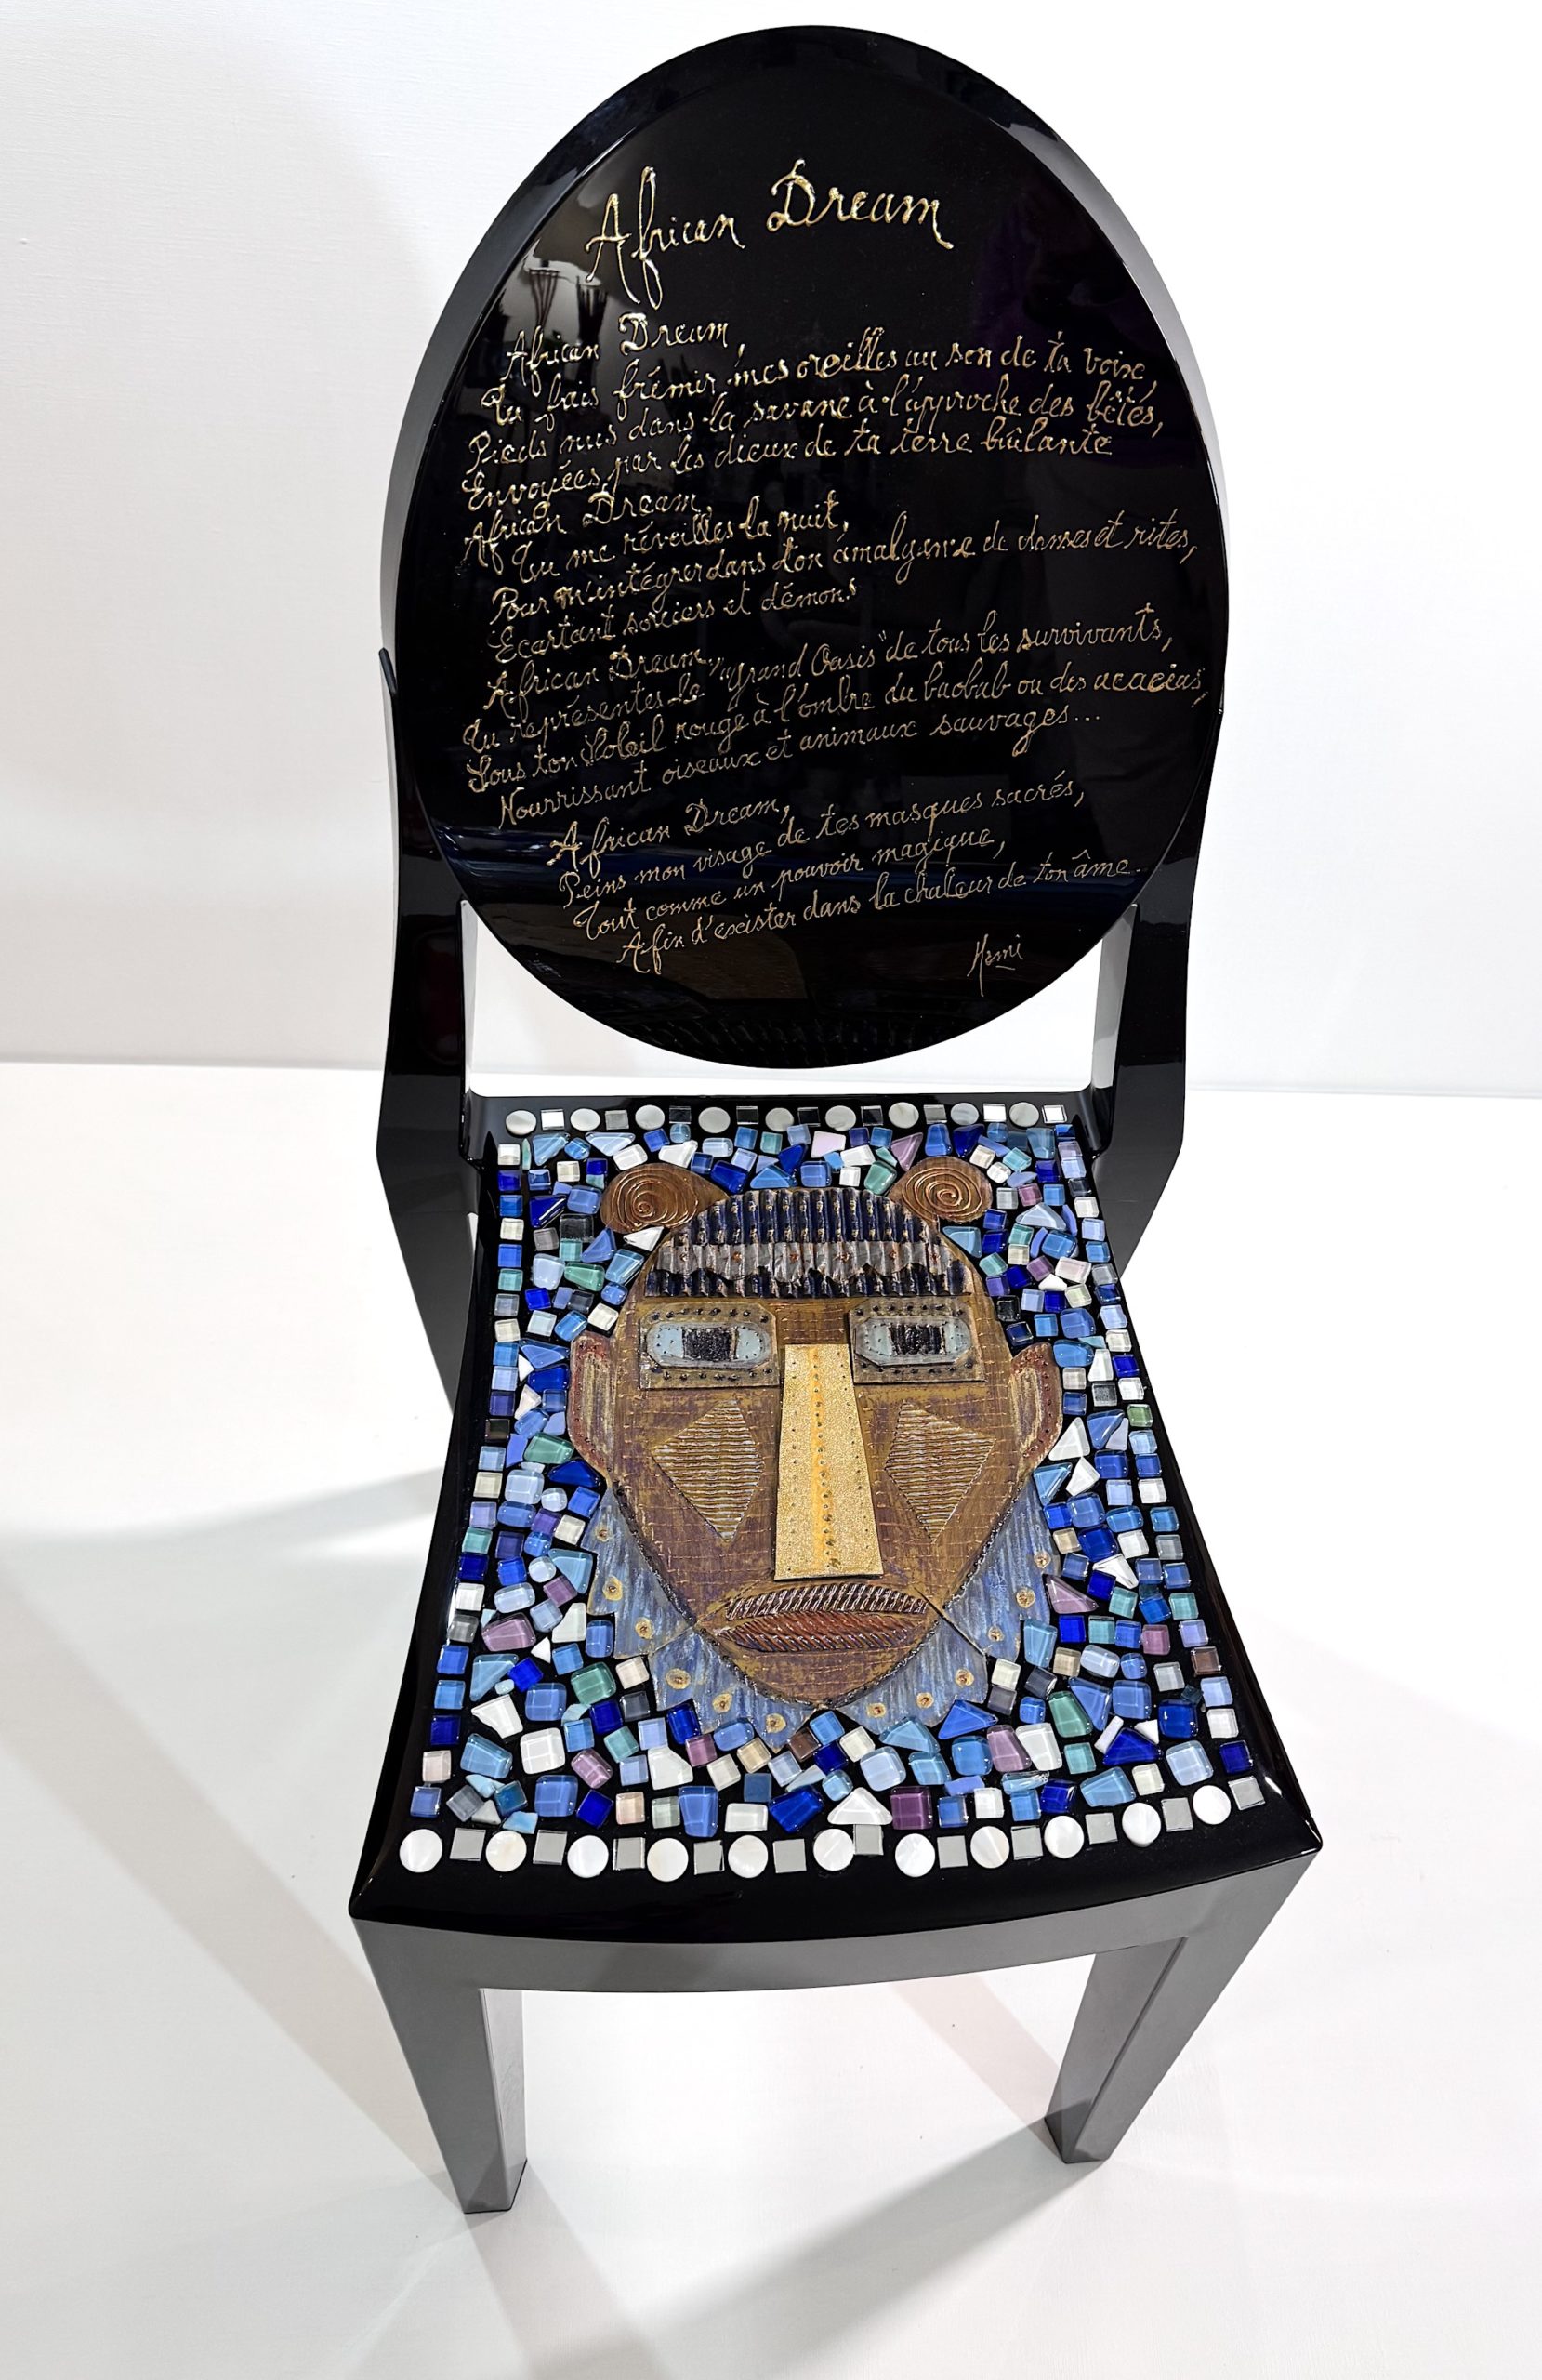 African Dream
African Dream,
Tu fais frémir mes oreilles au son de ta voix,
Pieds nus dans la savane à l'approche des bêtes,
Envoyées par les dieux de ta terre brûlante
African Dream,
Tu me réveilles la nuit,
Pour m'intégrer dans ton amalgame de danses et rites,
Ecartant sorciers et démons
African Dream,
Tu représentes le "grand Oasis" de tous les survivants,
Sous ton Soleil rouge à l'ombre du baobab ou des acacias,
Nourrissant oiseaux et animaux sauvages...
African Dream,
Peins mon visage de tes masques sacrés,
Tout comme un pouvoir magique,
Afin d'exister dans la chaleur de ton âme.